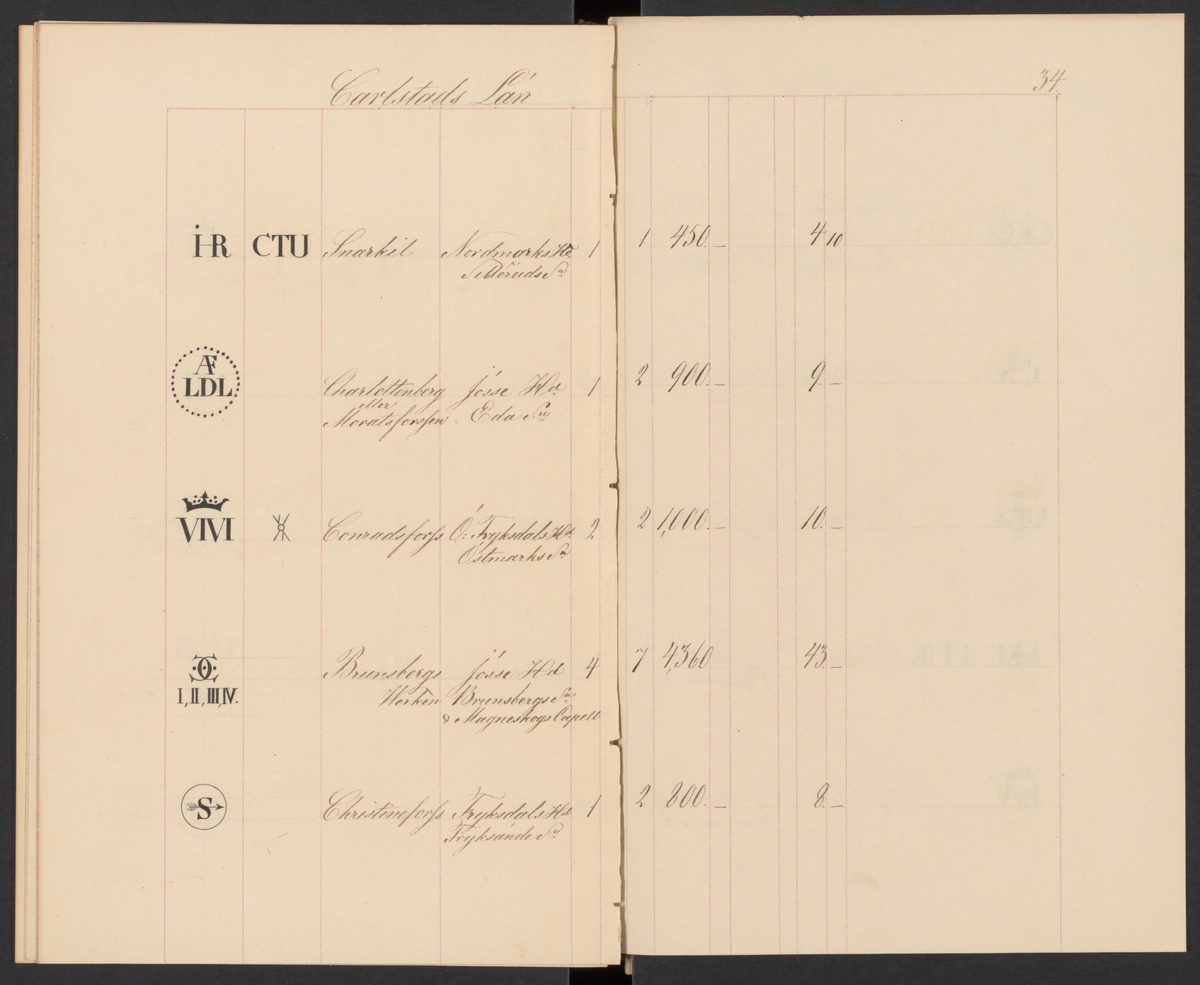 Carlstads Län
34.
I-R CTU Snarkil Nordmarks Hd 1 1 450. — 4 10
Silleruds Sn
Æ
LDL Charlottenberg Jösse Hd 1 2 900. — 9. —
eller
Moratsforssen Eda Sn
VIVI Conradsforss Ö: Fryksdals Hd 2 2 1,000. — 10. —
Östmarks Sn
Brunsbergs Jösse Hd 4 7 4,360 43. —
I, II, III, IV. Werken Brunsbergs Sn
& Magneskogs Capell
S Christineforss Fryksdals Hd 1 2 800. — 8. —
Fryksände Sn